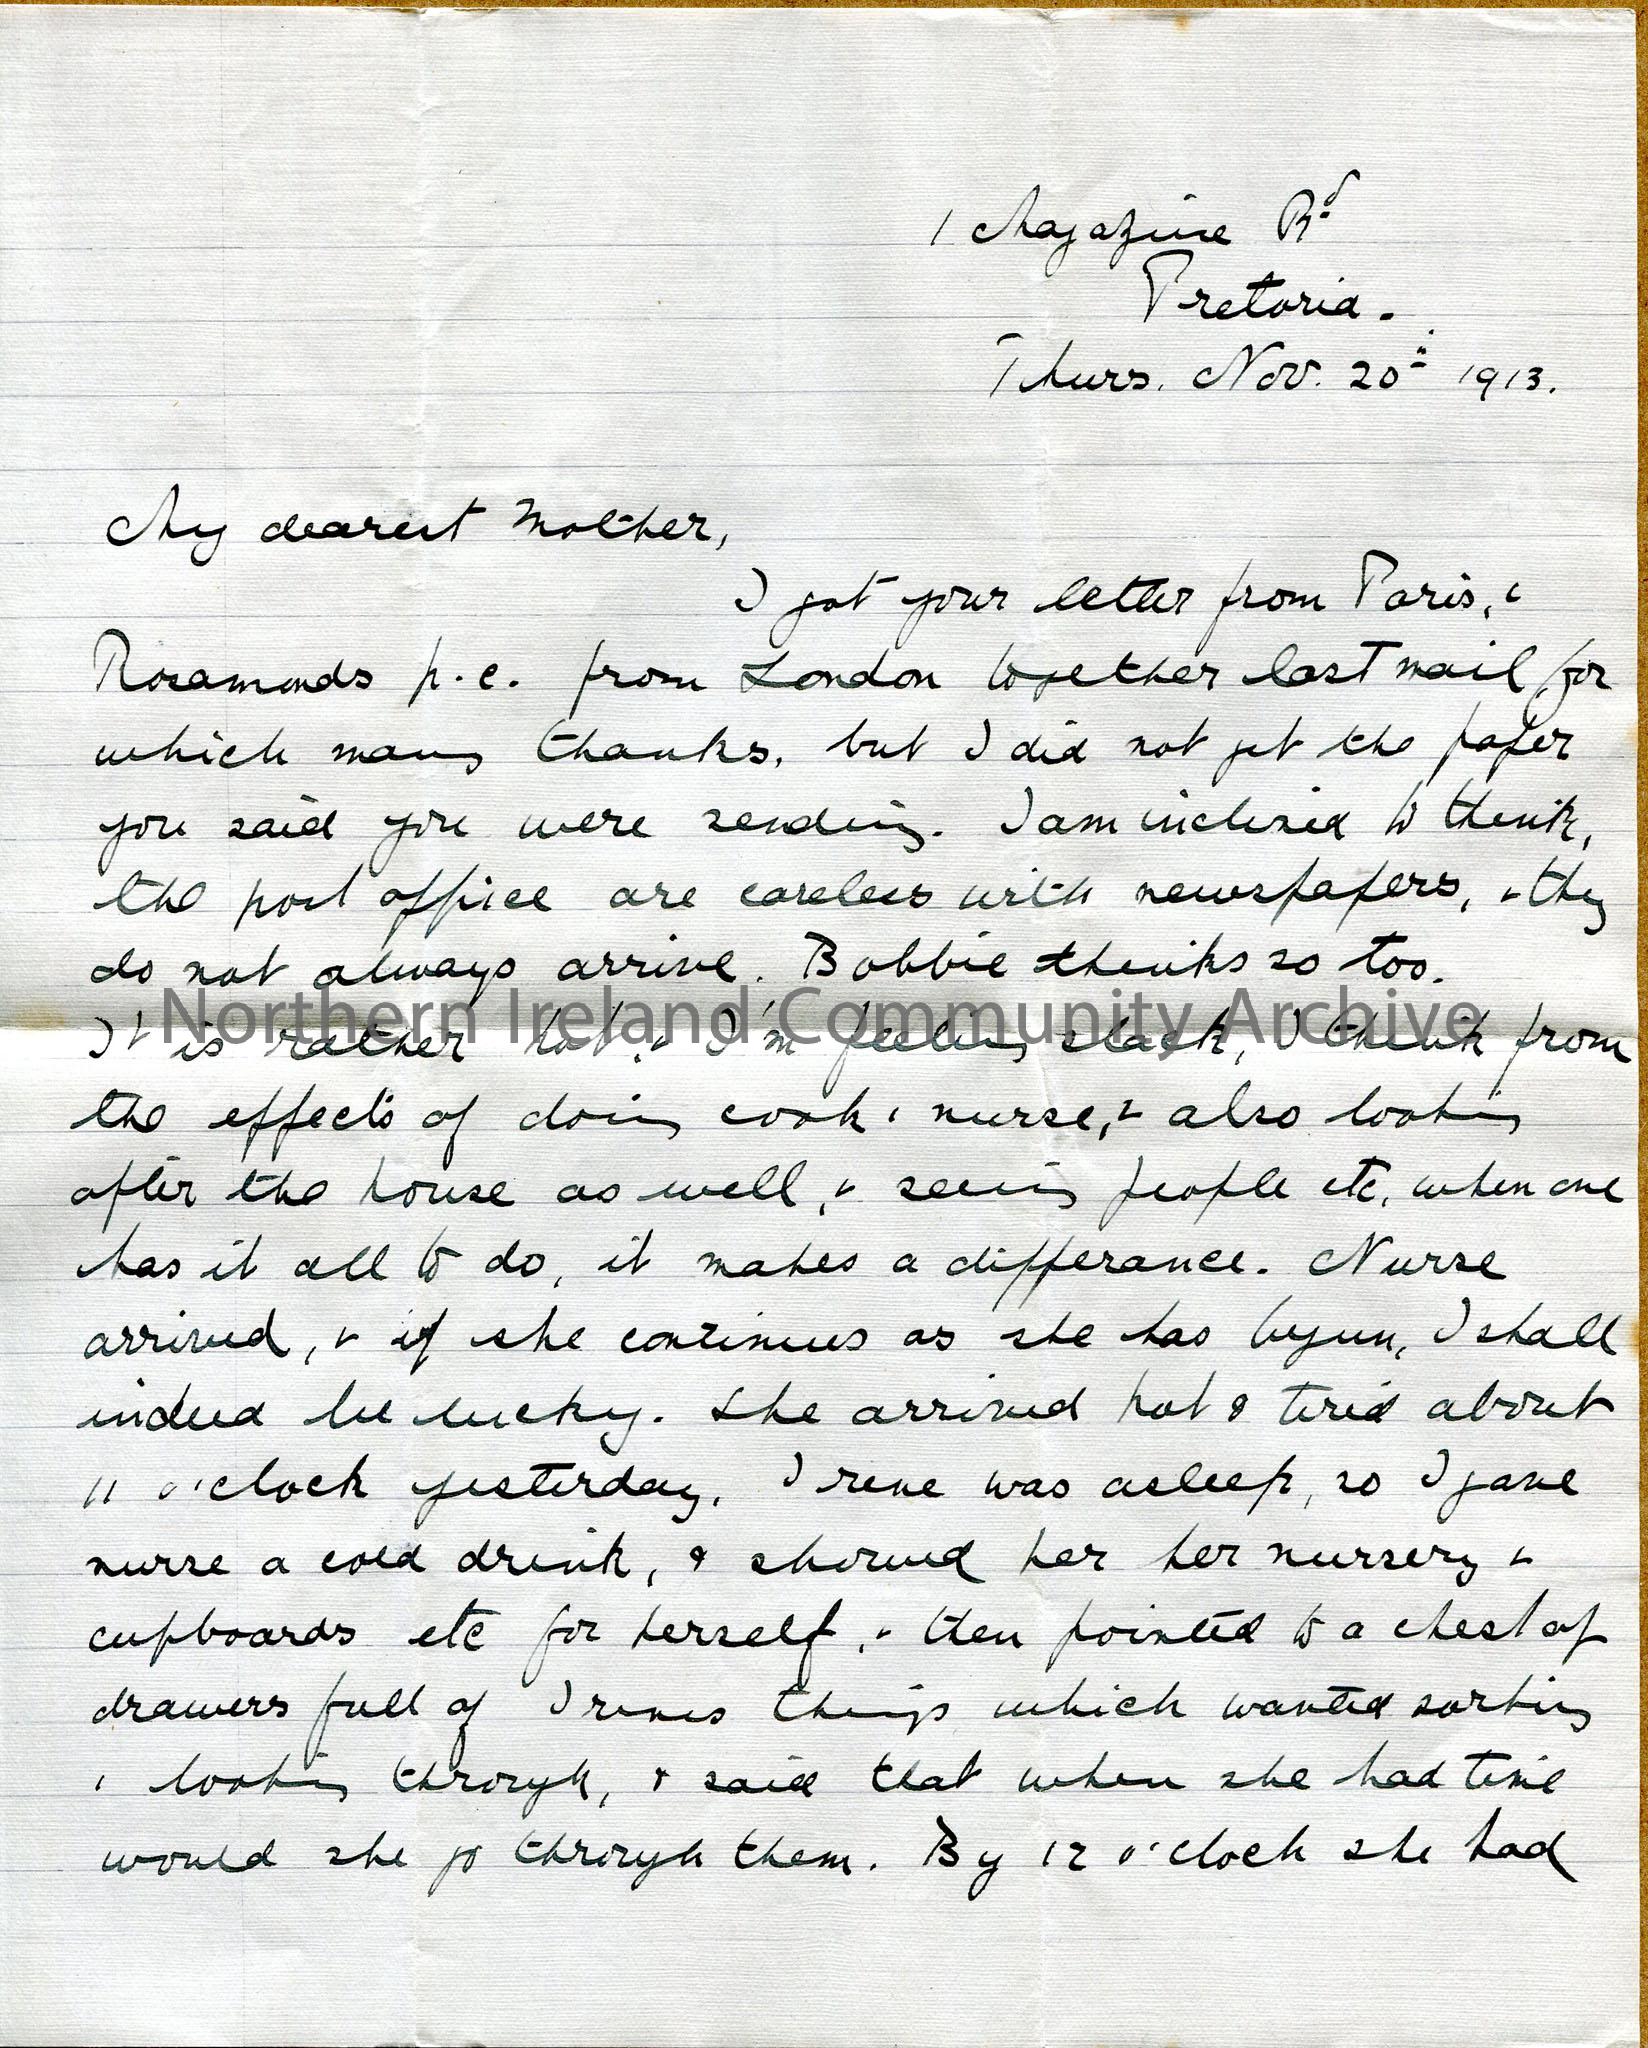 1 Magazine Rd
Pretoria.
Thurs. Nov. 20th 1913.
My dearest Mother,
I got your letter from Paris, &
Rosamonds p.c. from London together last mail, for
which many thanks, but I did not get the paper
you said you were sending. I am inclined to think,
the post office are careless with newspapers, & they
do not always arrive. Bobbie thinks so too.
Northern Ireland Community Archive
It is rather hot, & I'm feeling slack, I think from
the effects of doing cook & nurse, & also looking
after the house as well, & seeing people etc, when one
has it all to do, it makes a differance. Nurse
arrived, & if she continues as she has begun, I shall
indeed be lucky. She arrived hot & tired about
11 o'clock yesterday, Irene was asleep, so I gave
nurse a cold drink, & showed her her nursery &
cupboards etc for herself, & then pointed to a chest of
drawers full of Irenes things which wanted sorting
& looking through, & said that when she had time
would she go through them. By 12 o'clock she had